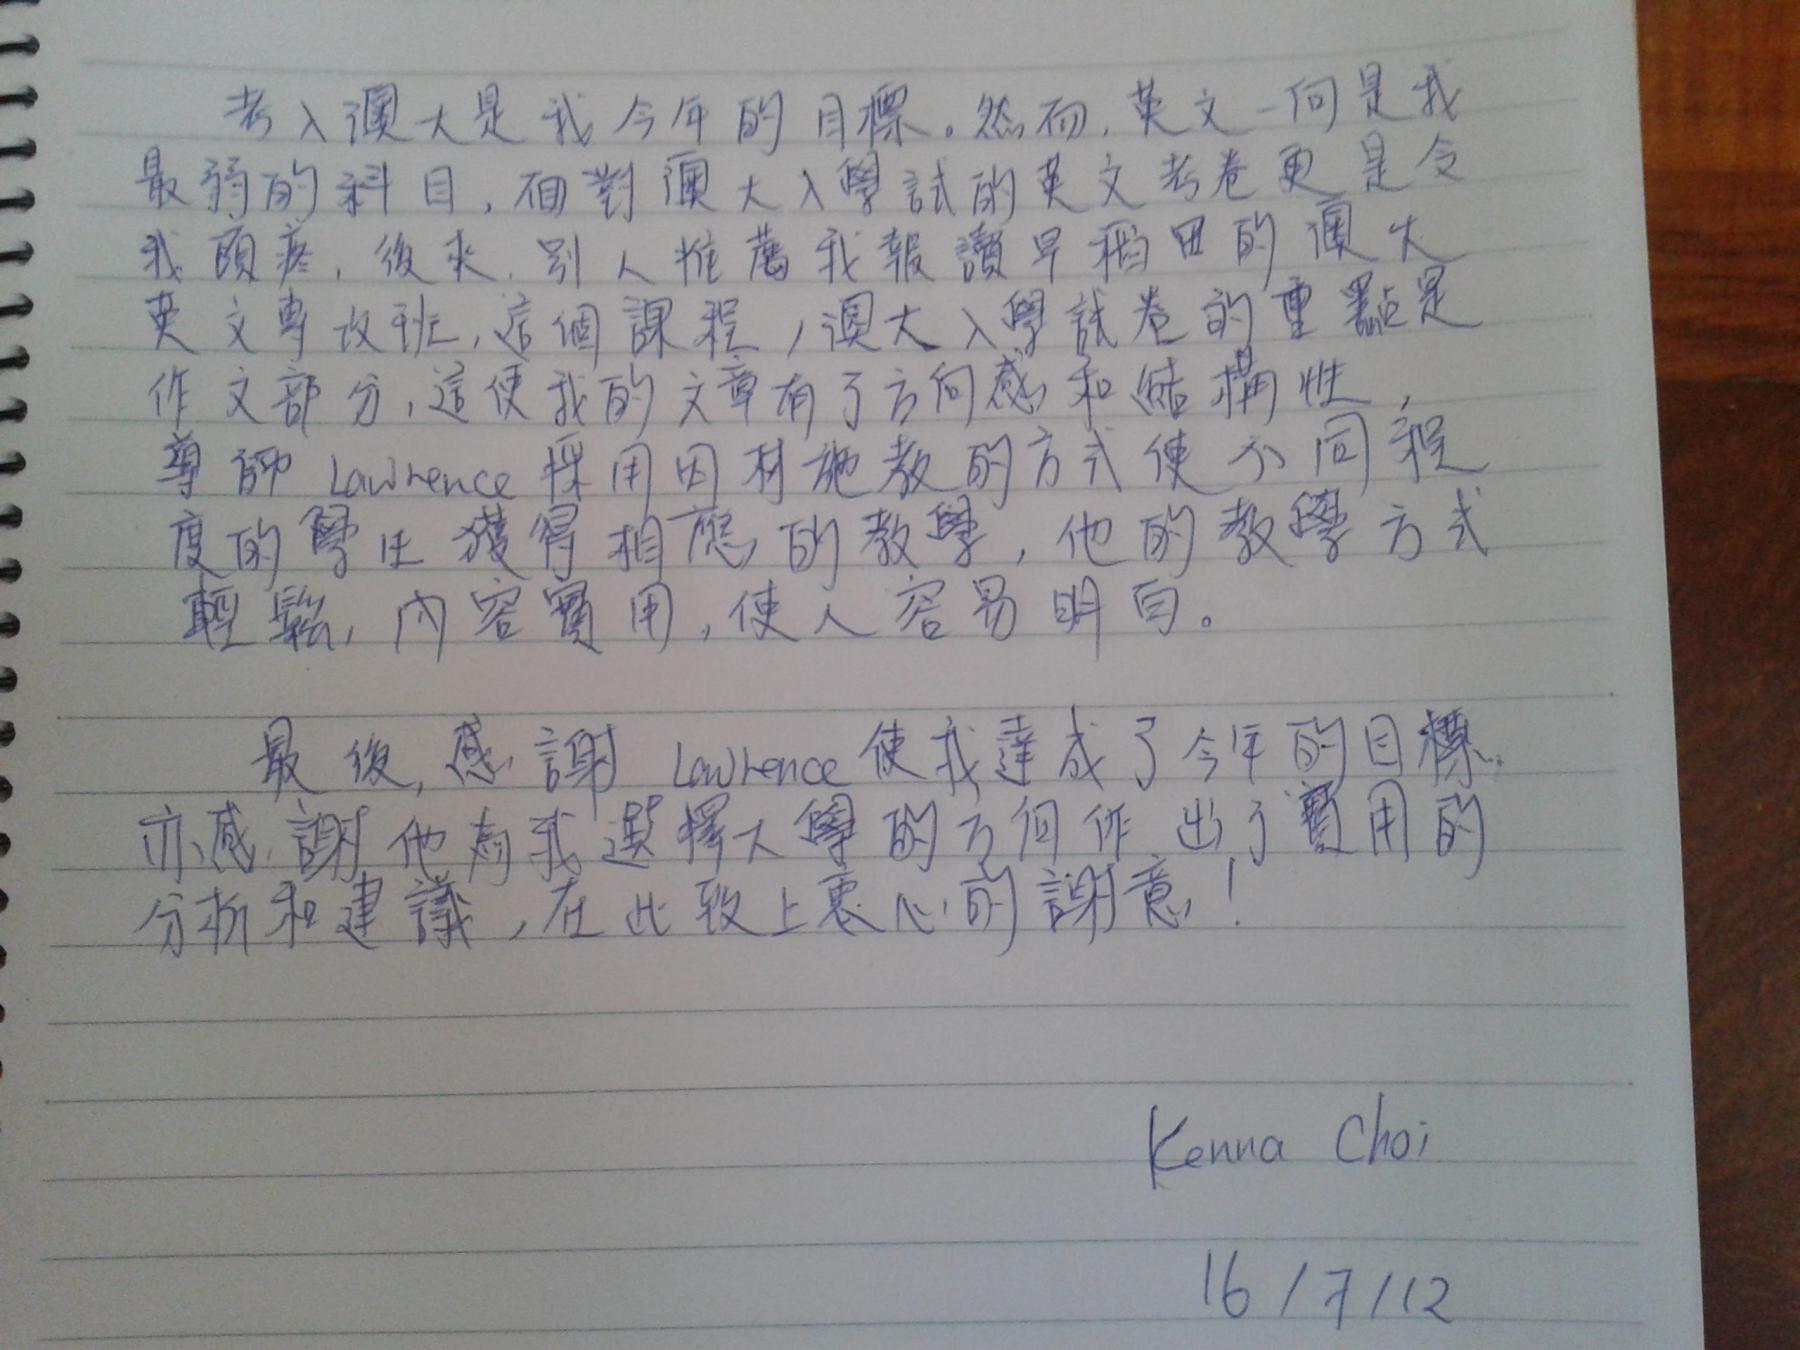 考入澳大是我今年的目標。然而,英文一向是我
最弱的科目,面對澳大入學試的英文考卷更是令
我頭疼,後來,別人推薦我報讀早稻田的澳大
英文專攻班,這個課程,澳大入學試卷的重點是
作文部分,這使我的文章有了方向感和結構性,
導師 Lawrence 採用因材施教的方式使不同程
度的學生獲得相應的教學,他的教學方式
輕鬆,內容實用,使人容易明白。
最後,感謝 Lawrence 使我達成了今年的目標,
亦感謝他為我選擇大學的方向作出了實用的
分析和建議,在此致上衷心的謝意!
Kenna Choi
16/7/12